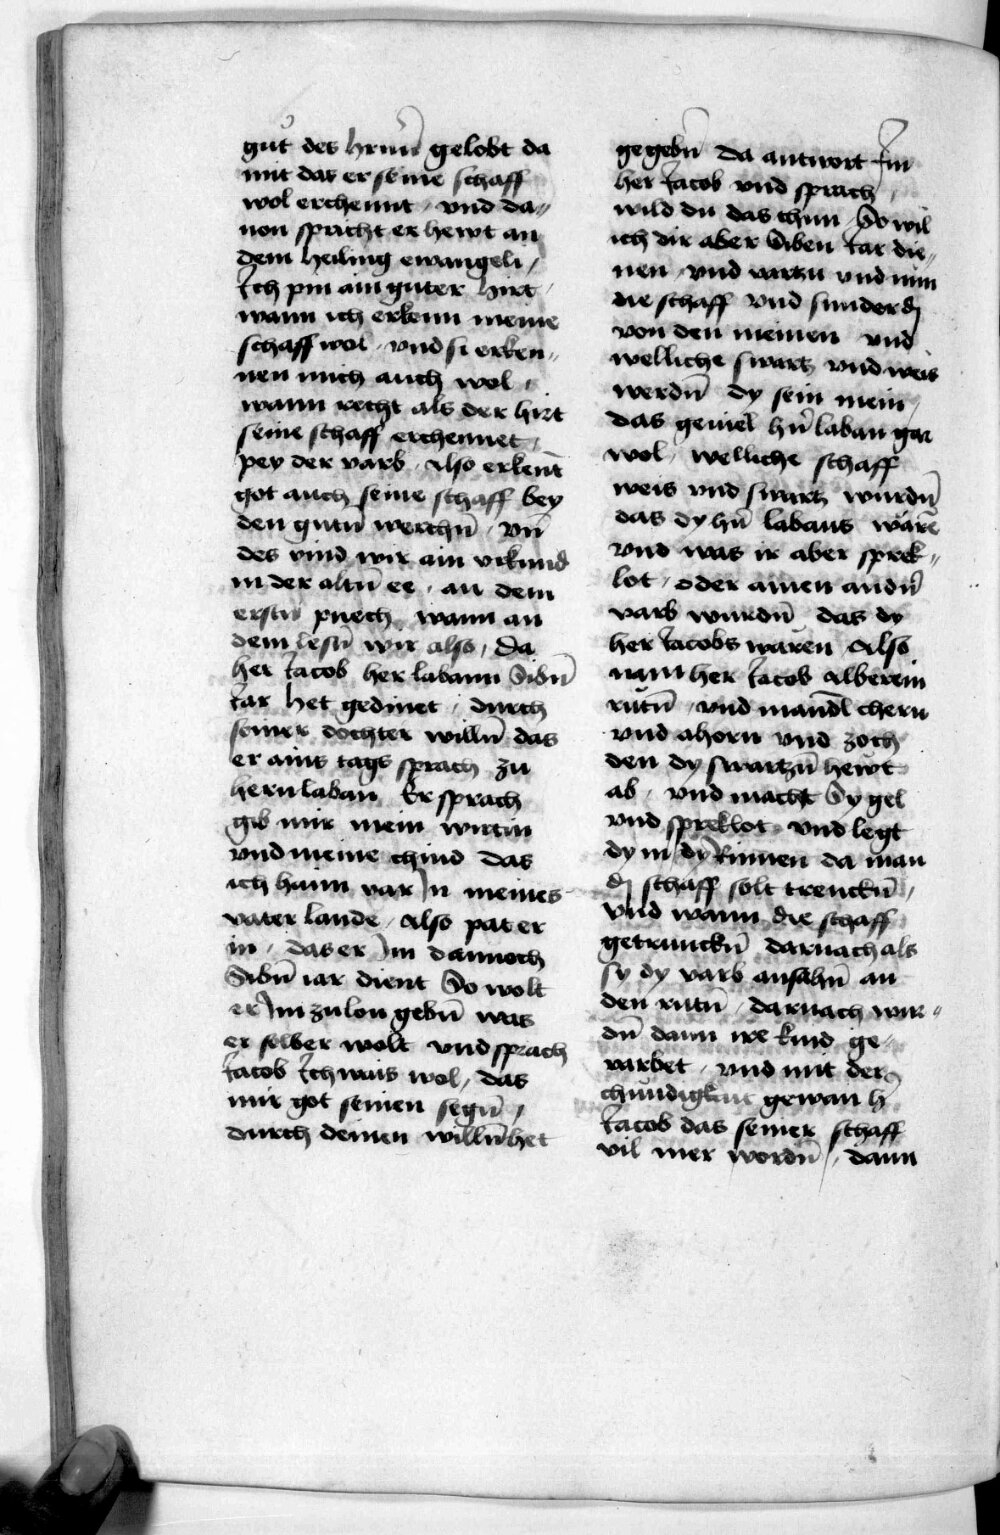 gůt des hrnn̄ gelobt da
mit das er seine schaff
wol erchennt · vnd da„
uon spricht er hewt an
dem heiling ewangeli /
Ich pin ain guter hirt ·
wann ich erkenn meine
schaff wol · vnd si erken„
nen mich auch wol ·
wann recht als der hirt
seine schaff erchennet ·
pey der varb · Also erkent̄
got auch seine schaff bey
den gutn̄ werchn̄ · vn̄
des vind wir ain vrkund
in der altn̄ ee · an dem
erstn̄ puech wann an
dem lesn̄ wir also / Da
her Jacob her labann Sibn̄
Jar het gedinet · durch
seiner dochter willn̄ das
er ains tags sprach zu
hern laban Er sprach
gib mir mein wirtin
vnd meine chind das
ich haim var In meines
vater lande / Also pat er
in · das er Im dannoch
Sibn̄ iar dient So wolt
er Im zu lon gebn̄ was
er selber wolt vnd sprach
Jacob Ich wais wol / das
mir got seinen segn̄ /
durch deinen willn̄ het
gegebn̄ Da antwort Im
her Jacob vnd sprach /
wild du das thun / So wil
ich dir aber Siben Jar die„
nen · vnd vartzu vnd nim
die schaff vnd sunder dy
von den meinen vnd
welliche swartz vnd weis
werdn̄ dy sein mein /
das geuiel hn̄ laban gar
wol · welliche schaff
weis vnd swartz wurdn̄
das dy hn̄ labans warē
vnd was ir aber sprek„
lot · oder ainen andn̄
varb wurdn̄ das dy
her Jacobs waren Also
nam her Jacob alberein
rutn̄ · vnd mandl chern
vnd ahorn vnd zoch
den dy swartzn̄ hewt
ab · vnd macht Sy gel
vnd spreklot · vnd legt
dy in dy Rinnen da man
dy schaff solt trenckn̄ /
vnd wann die schaff
getrunckn̄ darnach als
sy dy varb ansahn̄ an
den rutn̄ · darnach wur„
dn̄ dann ire kind ge„
varbet · vnd mit der
chundigkait gewan h̄
Jacob das seiner schaff
vil mer wordn̄ / dann